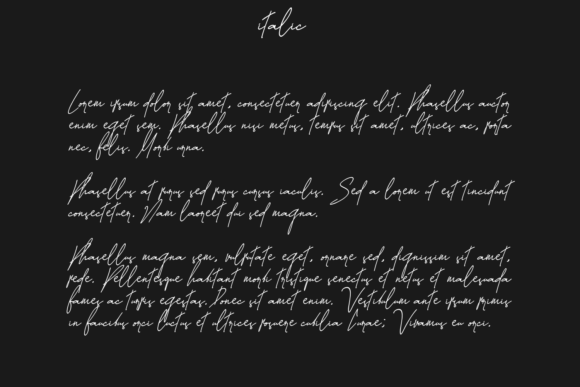 italic
Lorem ipsum dolor sit amet, consectetuer adipiscing elit. Phasellus auctor
enim eget sem. Phasellus nisi metus, tempus sit amet, ultrices ac, porta
nec, felis. Morbi urna.
Phasellus at purus sed purus cursus iaculis. Sed a lorem ut est tincidunt
consectetuer. Nam laoreet dui sed magna.
Phasellus magna sem, vulputate eget, ornare sed, dignissim sit amet,
pede. Pellentesque habitant morbi tristique senectus et netus et malesuada
fames ac turpis egestas. Donec sit amet enim. Vestibulum ante ipsum primis
in faucibus orci luctus et ultrices posuere cubilia Curae; Vivamus eu orci.